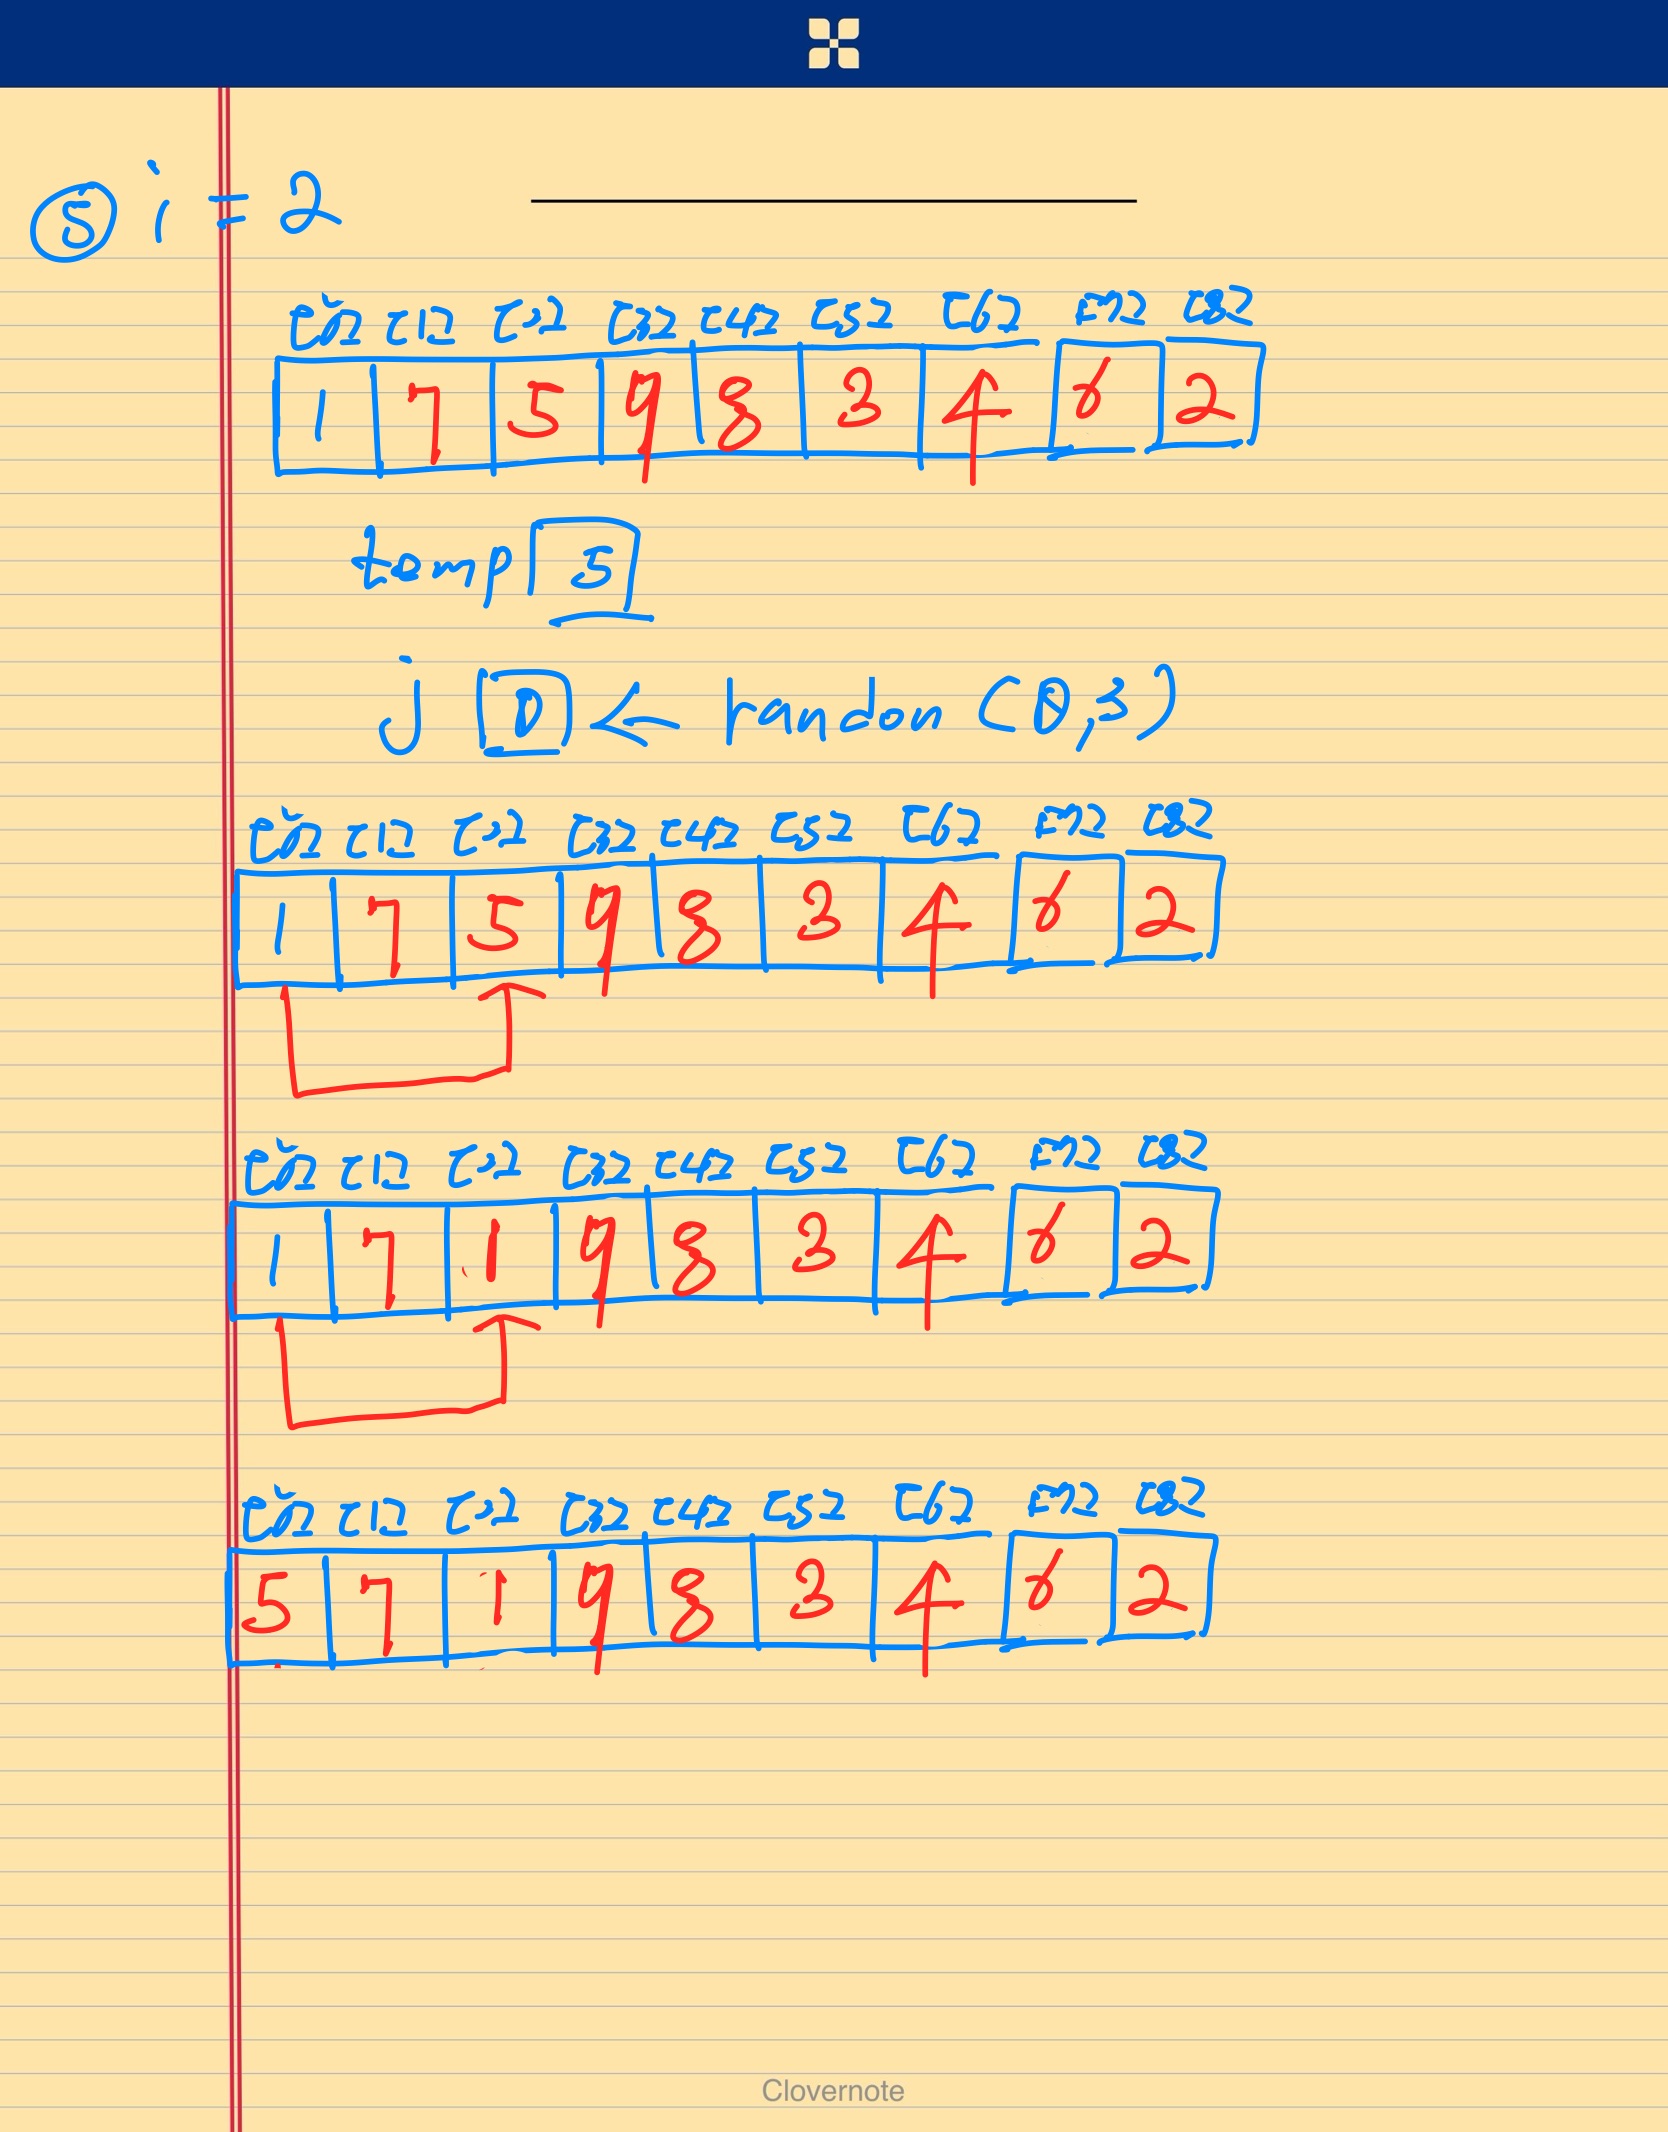 ⑤ i = 2
[0] [1] [2] [3] [4] [5] [6] [7] [8]
1 7 5 9 8 3 4 6 2
temp 5
j 0 ← randon (0,3)
[0] [1] [2] [3] [4] [5] [6] [7] [8]
1 7 5 9 8 3 4 6 2
[0] [1] [2] [3] [4] [5] [6] [7] [8]
1 7 1 9 8 3 4 6 2
[0] [1] [2] [3] [4] [5] [6] [7] [8]
5 7 1 9 8 3 4 6 2
Clovernote